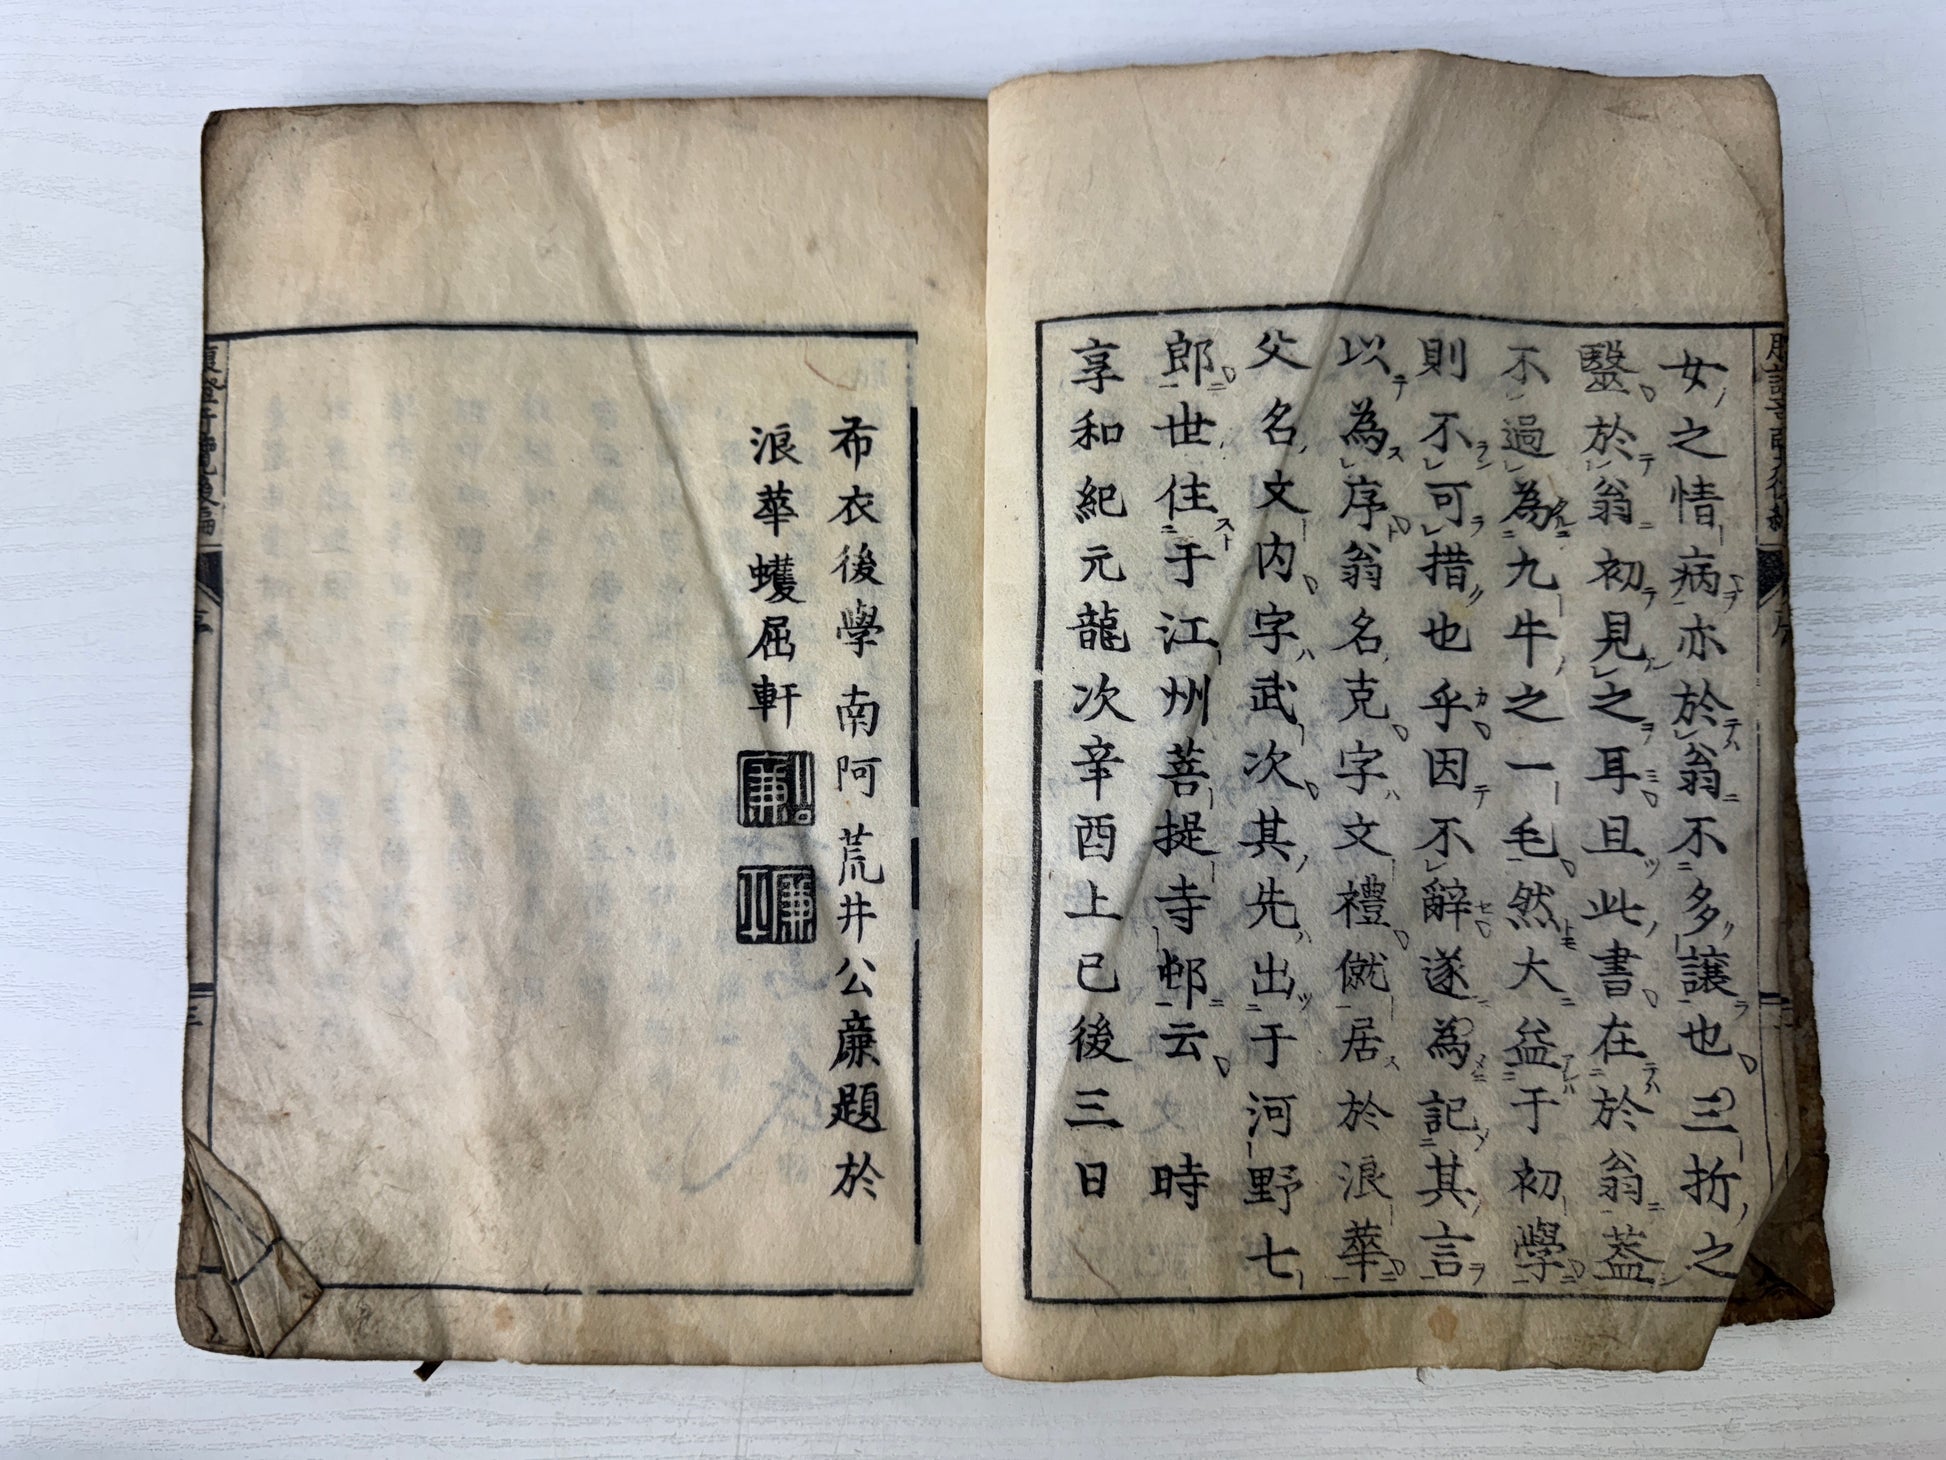 女之情病亦於翁不多讓也三折之
醫於翁初見之耳且此書在於翁蓋
不過為九牛之一毛然大益于初學
則不可措也乎因不辭遂為記其言
以為序翁名克字文禮僦居於浪華
父名文内字武次其先出于河野七
郎世住于江州菩提寺邨云 時
享和紀元龍次辛酉上巳後三日
希衣後學南阿荒井公廉題於
浪華蠖屈軒